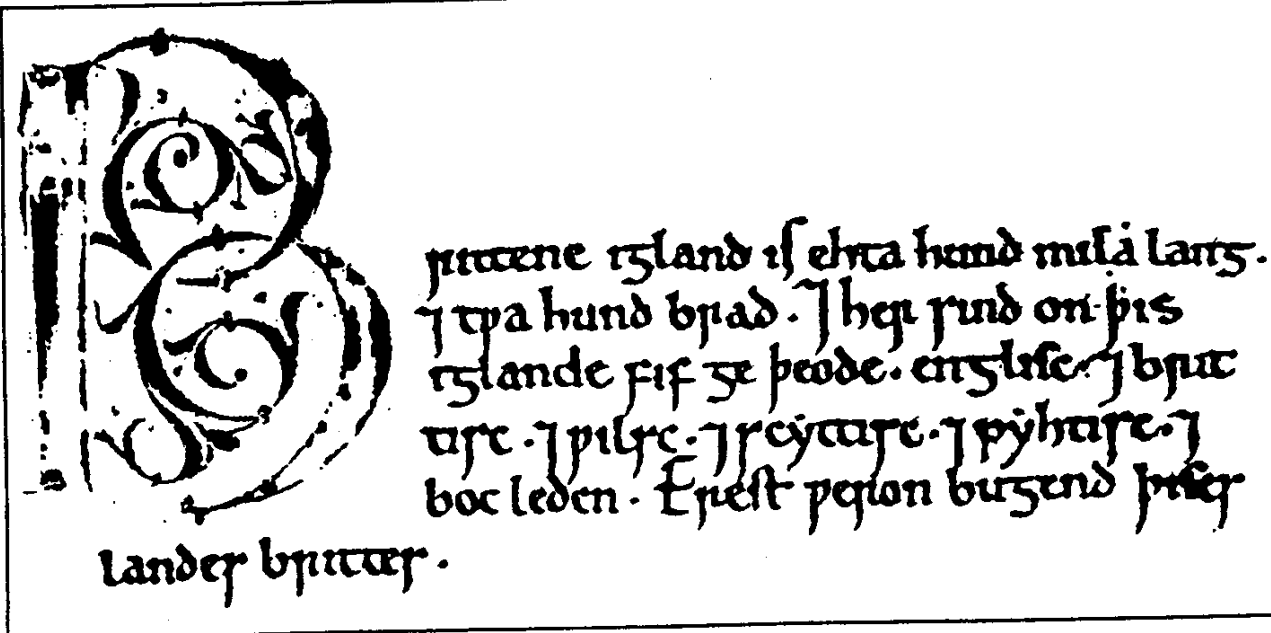 Brittene igland is ehta hund mila lang.
⁊ tƿa hund brad. ⁊ her sind on þis
iglande fif ge þeode. englisc. ⁊ brit
tisc. ⁊ ƿilsc. ⁊ scyttisc. ⁊ pyhtisc. ⁊
boc leden. Erest ƿeron bugend þises
landes brittes.